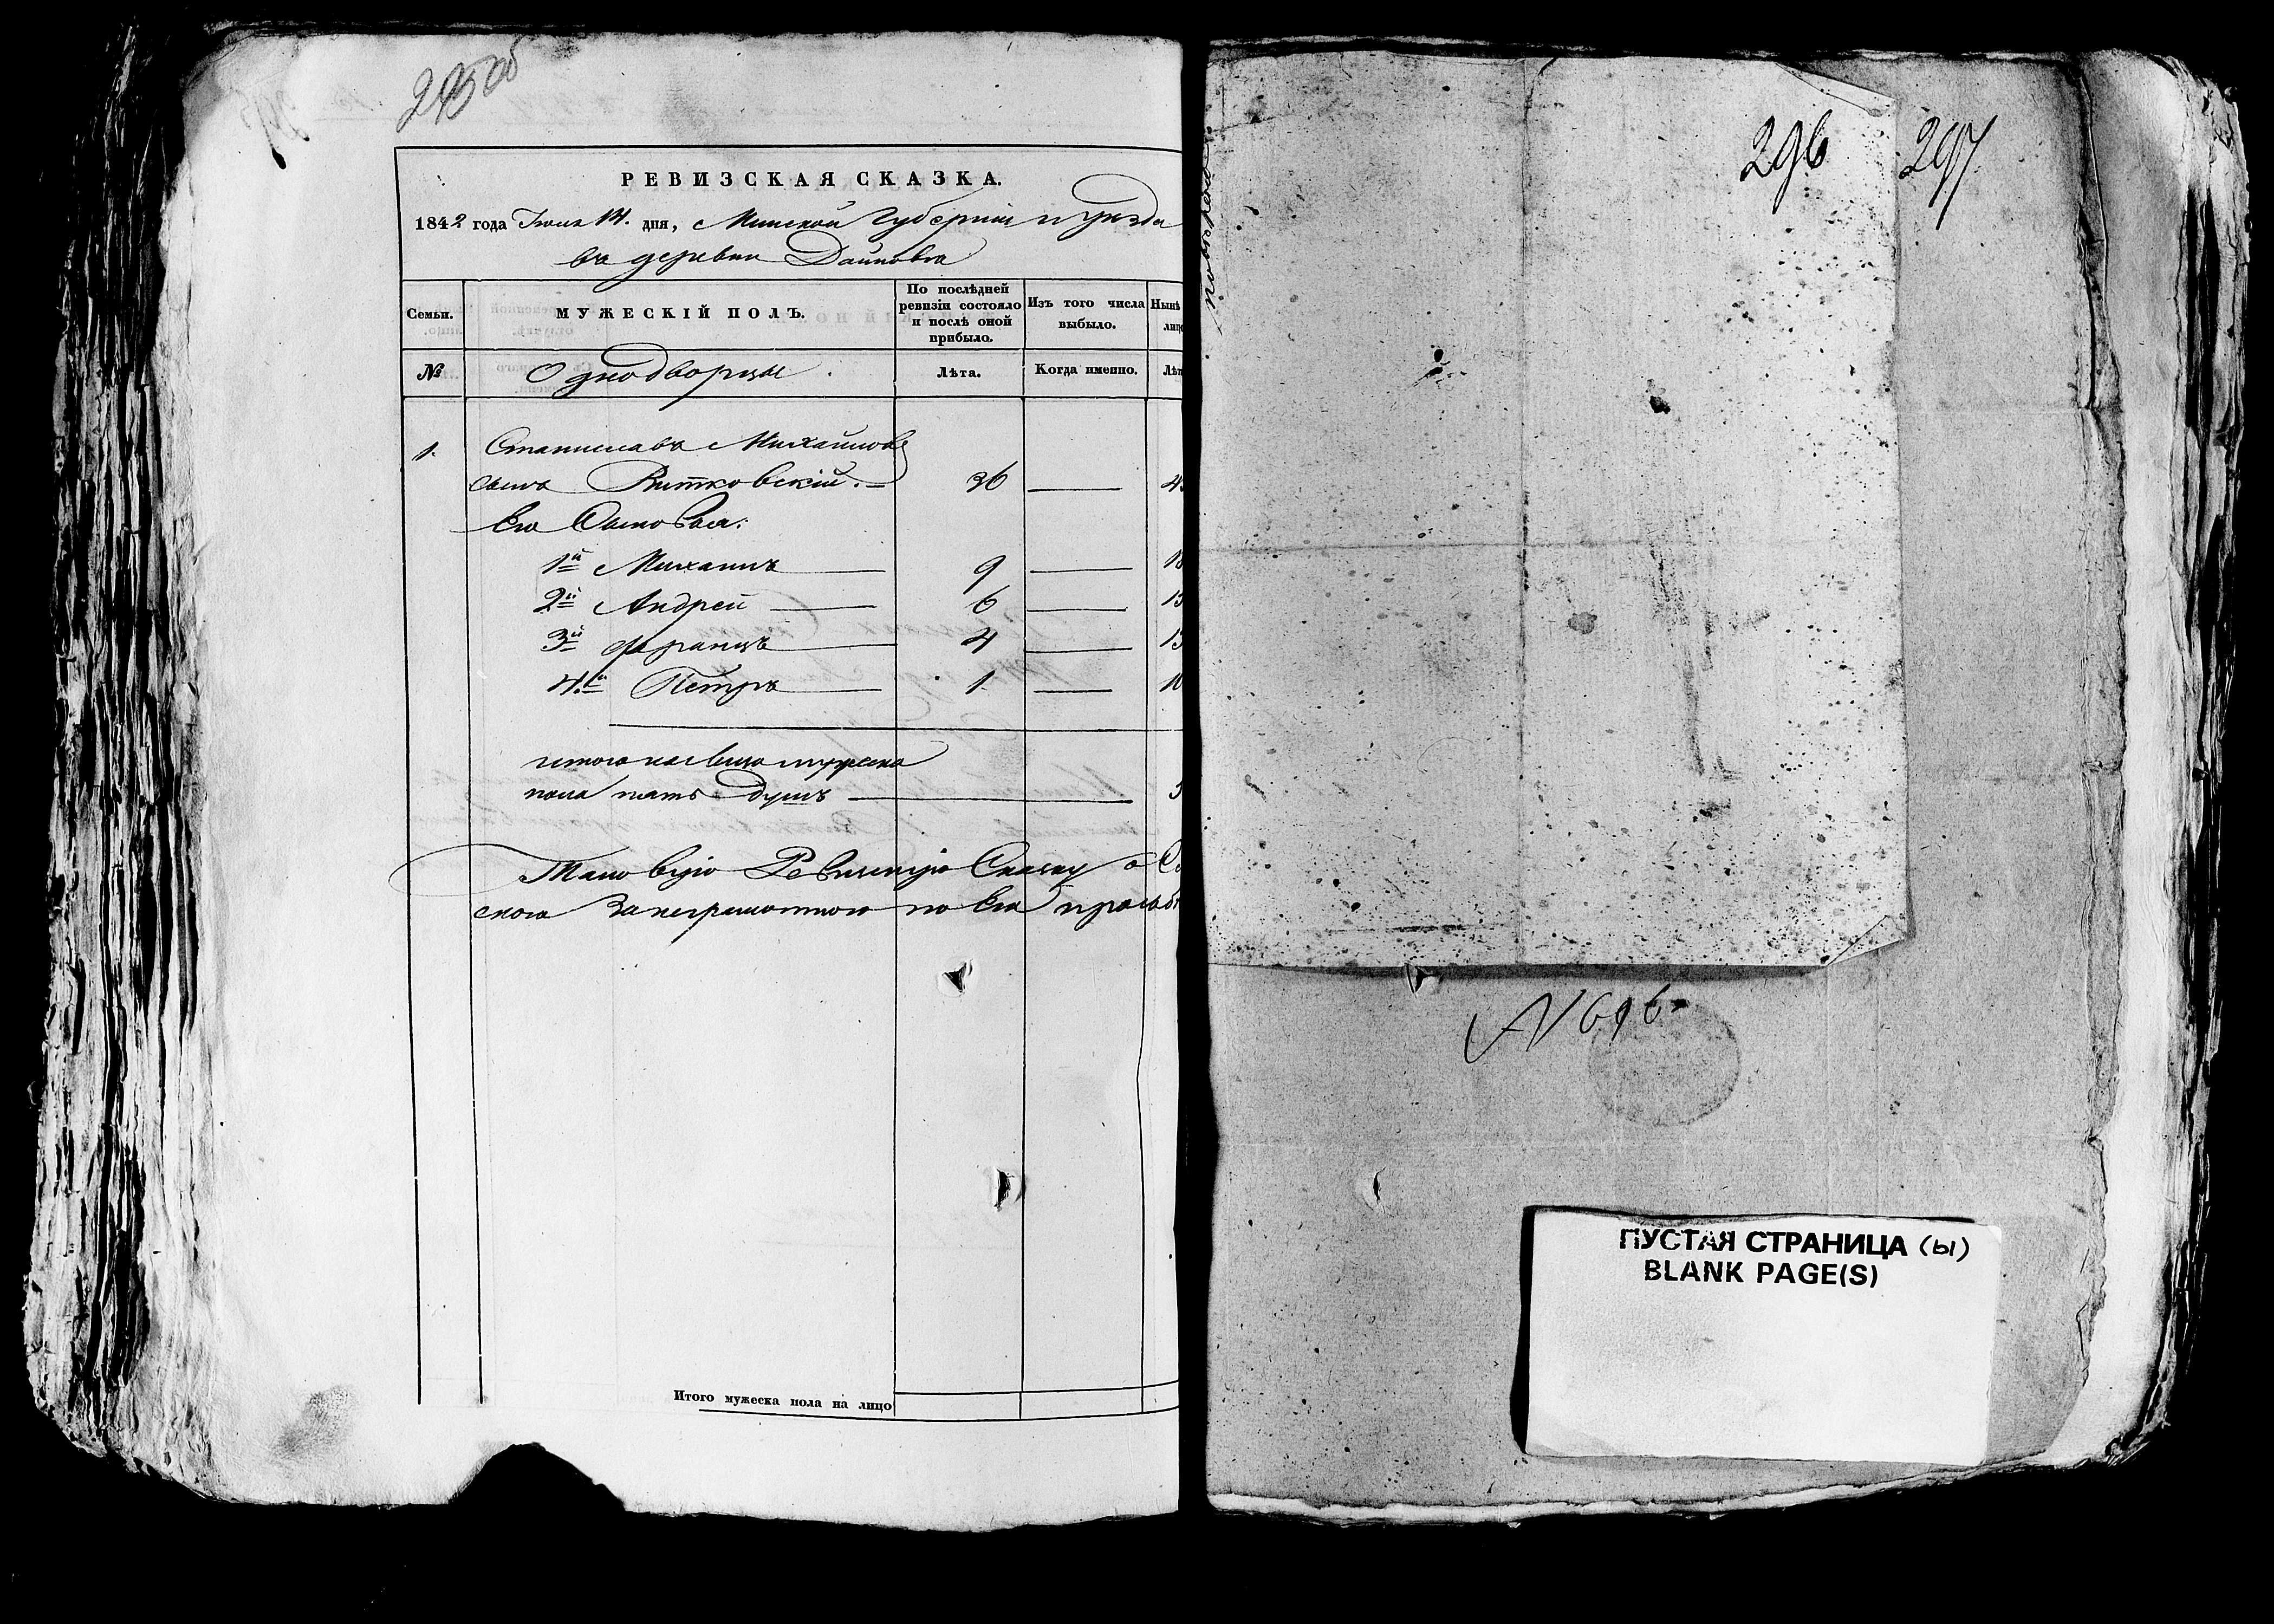 295 об
РЕВИЗСКАЯ СКАЗКА.
1842 года Июля 14. дня, Минской Губернии и уезда
въ деревни Дайновка
Семьи.
МУЖЕСКІЙ ПОЛЪ.
По послѣдней ревизіи состояло и послѣ оной прибыло.
Изъ того числа выбыло.
Нынѣ
лицо
№
Однодворцы.
Лѣта.
Когда именно.
Лѣт
1. Станиславъ Михайловъ
сынъ Витковскій. — 36 — 4
Его Сыновья:
1й Михаилъ — 9 — 18
2й Андрей — 6 — 15
3й Францъ — 4 — 13
4й Петръ — 1 — 10
итого на лицо мужеска
пола пять душъ — 5
Таковую Ревизскую Сказку о
ского за неграмотного по Его прозьбѣ
Итого мужеска пола на лицо
296
297
N 696
ПУСТАЯ СТРАНИЦА (ы)
BLANK PAGE(S)